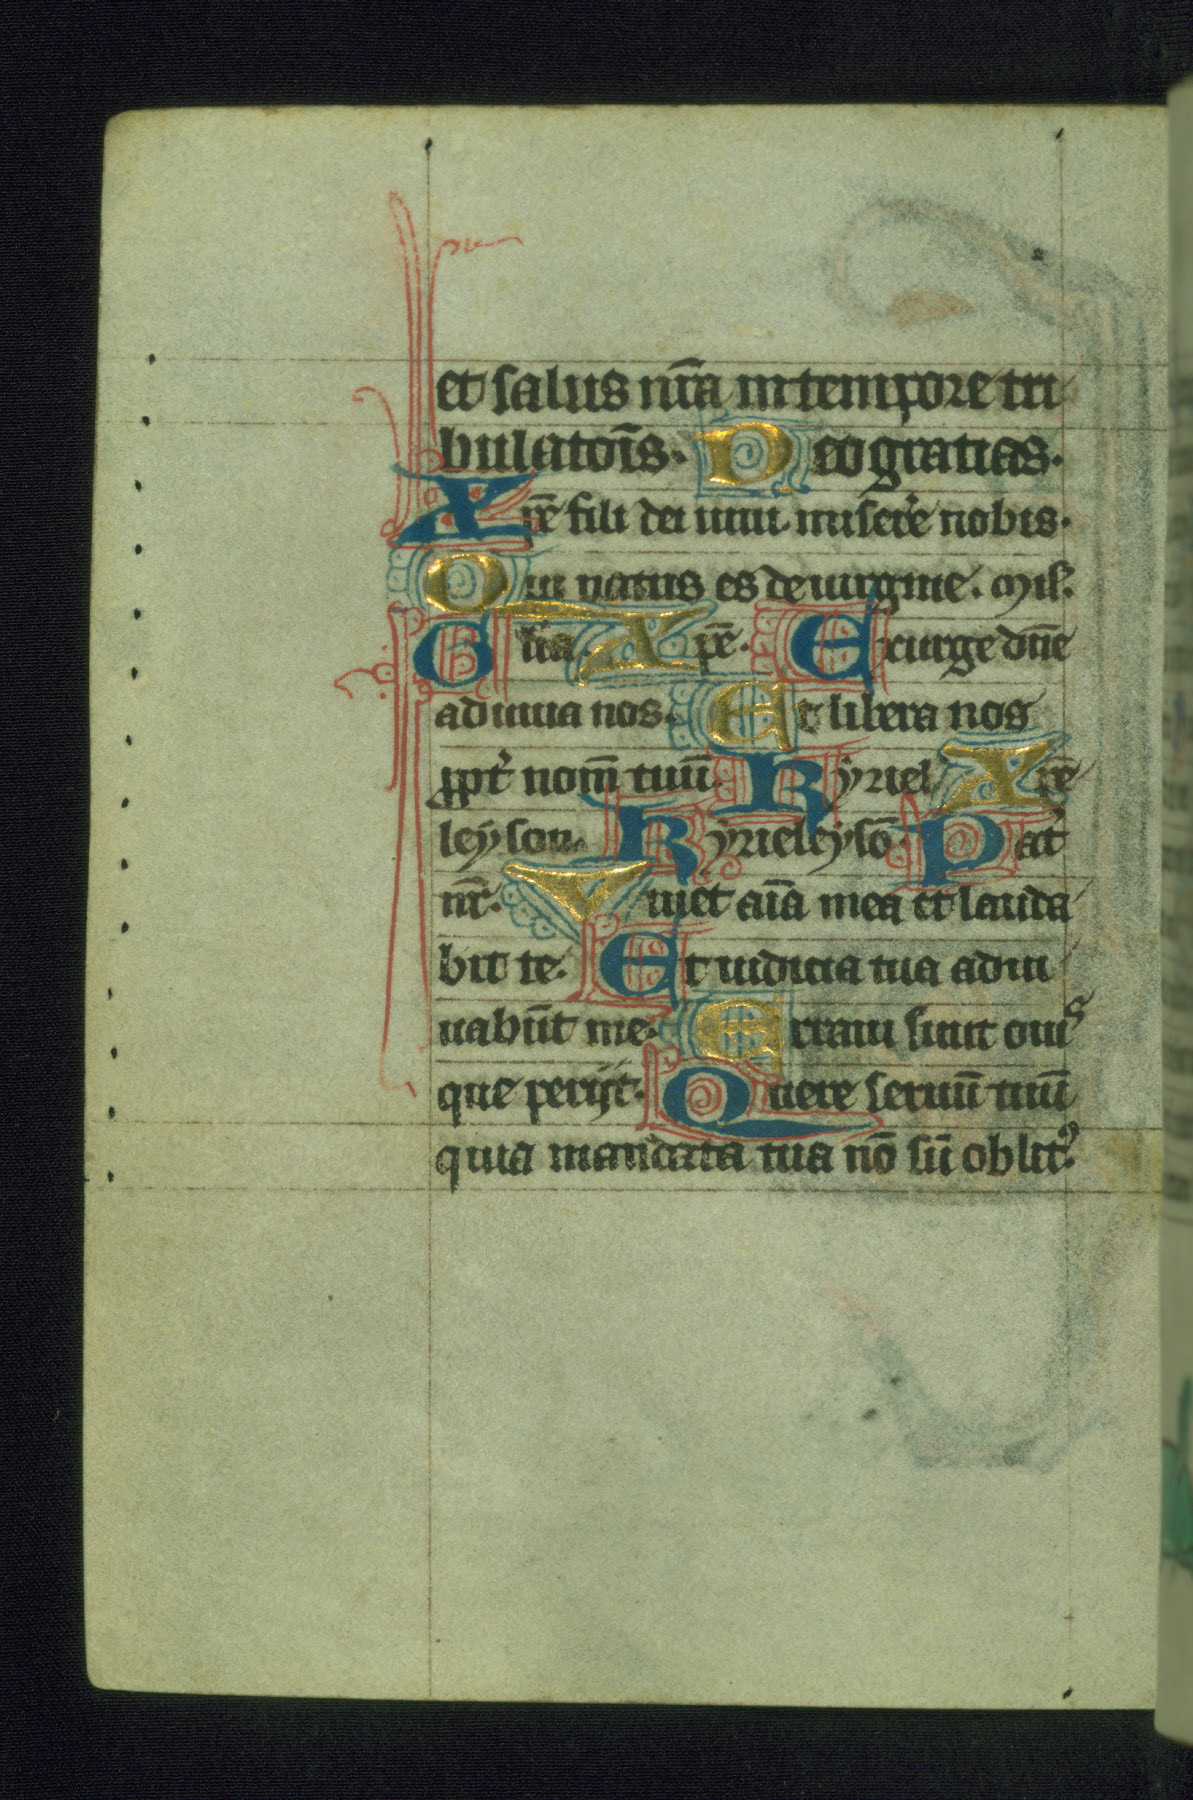 et salus nr̄a in tempore tri
bulatoīs. Deo gratias.
Xp̄e fili dei uiui miser̄e nobis.
Qui natus es de uirgine. Mis̄.
Gl̄ia. Xp̄e. Exurge dn̄e
adiuua nos. Et libera nos
ꝓpt̄ nom̄ tuū. Kyriel. Xp̄e
leyson. Kyrieleysō. Pat̄
nr̄. Viuet aīa mea et lauda
bit te. Et iudicia tua adiu
uabūt me. Erraui sicut ouis
que perijt. Quere seruū tuū
quia mandata tua nō sū oblitꝰ.